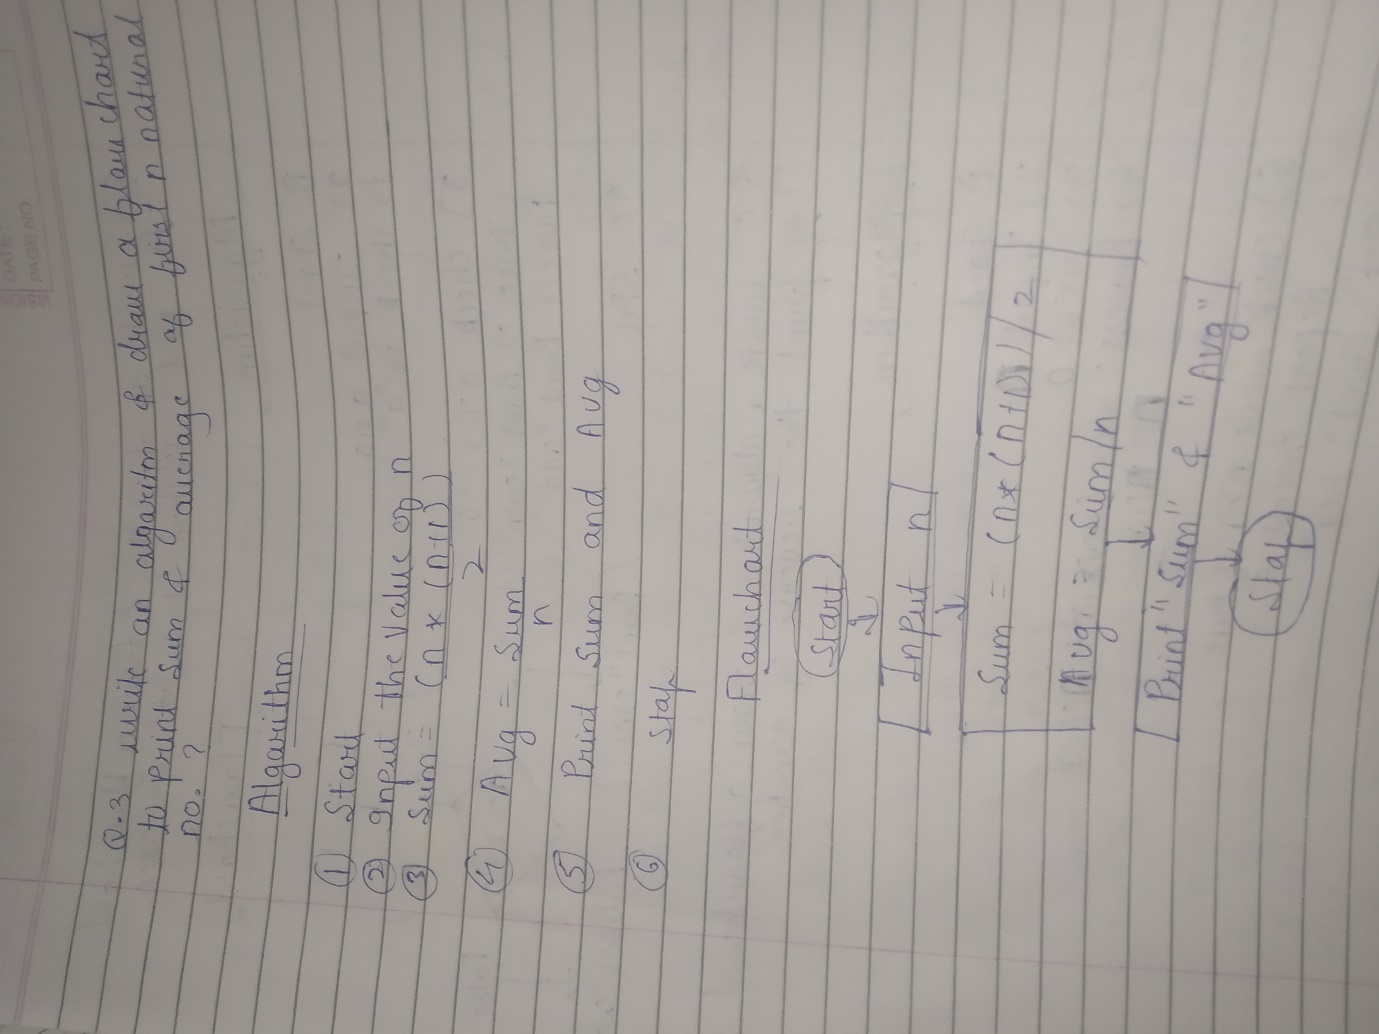 DATE
PAGE NO
Q.3 write an algaritm & draw a flow chart
to print Sum & auenage of first n natural
no. ?
Algarithm
① Start
② Input the value of n
③ Sum = (n * (n+1))
2
④ AVg = Sum
n
⑤ Print Sum and AVg
⑥ Stop
Flowchart
Start
Input n
Sum = (n*(n+1))/2
AVg = Sum/n
Print "Sum" & "AVg"
Stop